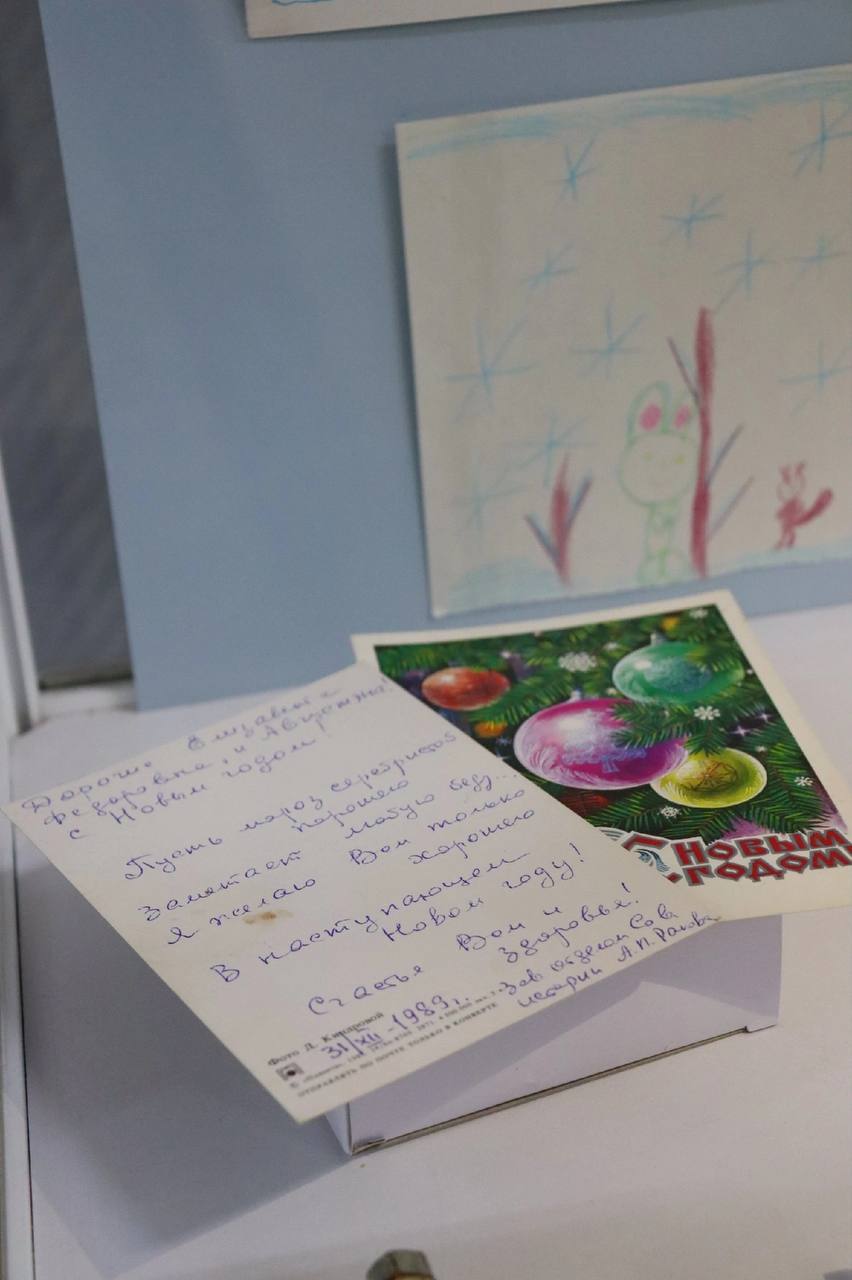 Дорогие Елизавета
Федоровна, и Августина!
с Новым годом!
Пусть мороз серебристой
порошею
Заметает любую беду...
Я желаю Вам только
хорошего
В наступающем
Новом году!
Счастья Вам и
Здоровья!
Зав отделом Сов
истории А.П. Ракова
31/XII - 1989 г.
Фото Д. Киндровой
©
ОТПРАВЛЯТЬ ПО ПОЧТЕ ТОЛЬКО В КОНВЕРТЕ
С НОВЫМ
ГОДОМ